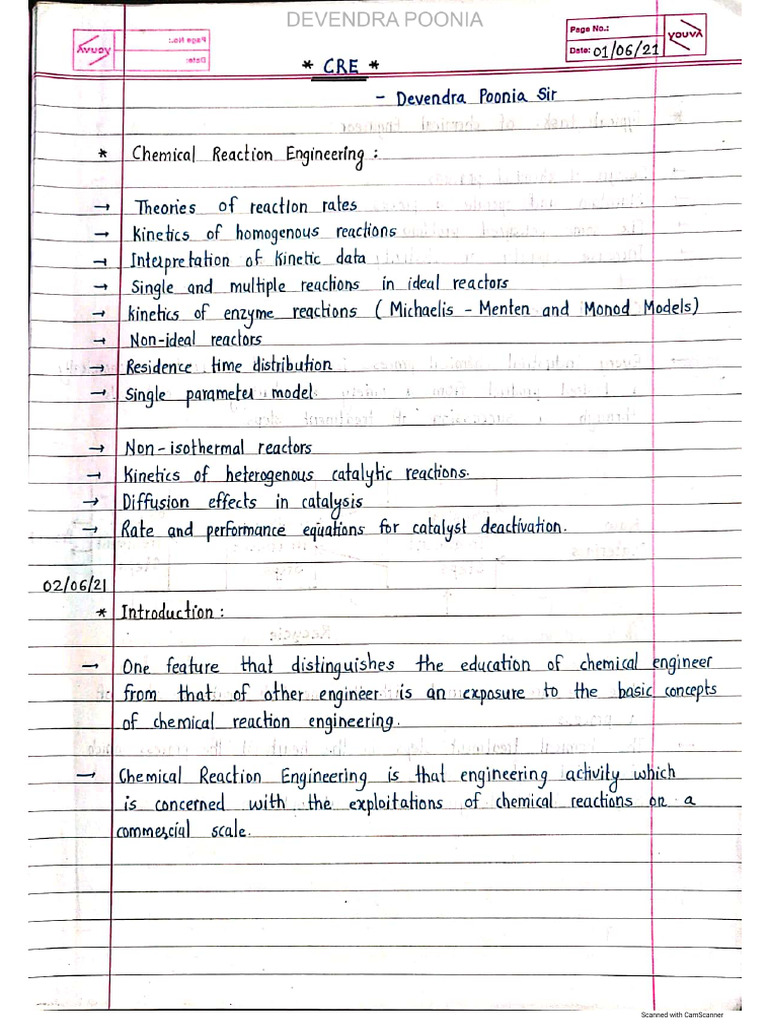 DEVENDRA POONIA
Page No.:
Date: 01/06/21
YOUVA
* CRE *
- Devendra Poonia Sir
* Chemical Reaction Engineering :
→ Theories of reaction rates
→ Kinetics of homogenous reactions
→ Interpretation of Kinetic data
→ Single and multiple reactions in ideal reactors
→ Kinetics of enzyme reactions ( Michaelis - Menten and Monod Models)
→ Non-ideal reactors
→ Residence time distribution
→ Single parameter model
→ Non-isothermal reactors
→ Kinetics of heterogenous catalytic reactions.
→ Diffusion effects in catalysis
→ Rate and performance equations for catalyst deactivation.
02/06/21
* Introduction :
→ One feature that distinguishes the education of chemical engineer
from that of other engineer is an exposure to the basic concepts
of chemical reaction engineering.
→ Chemical Reaction Engineering is that engineering activity which
is concerned with the exploitations of chemical reactions on a
commercial scale.
Scanned with CamScanner